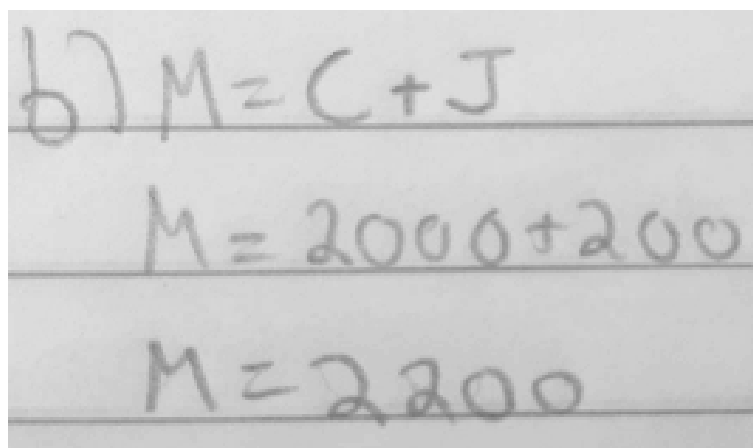 b) M = C + J
M = 2000 + 200
M = 2200